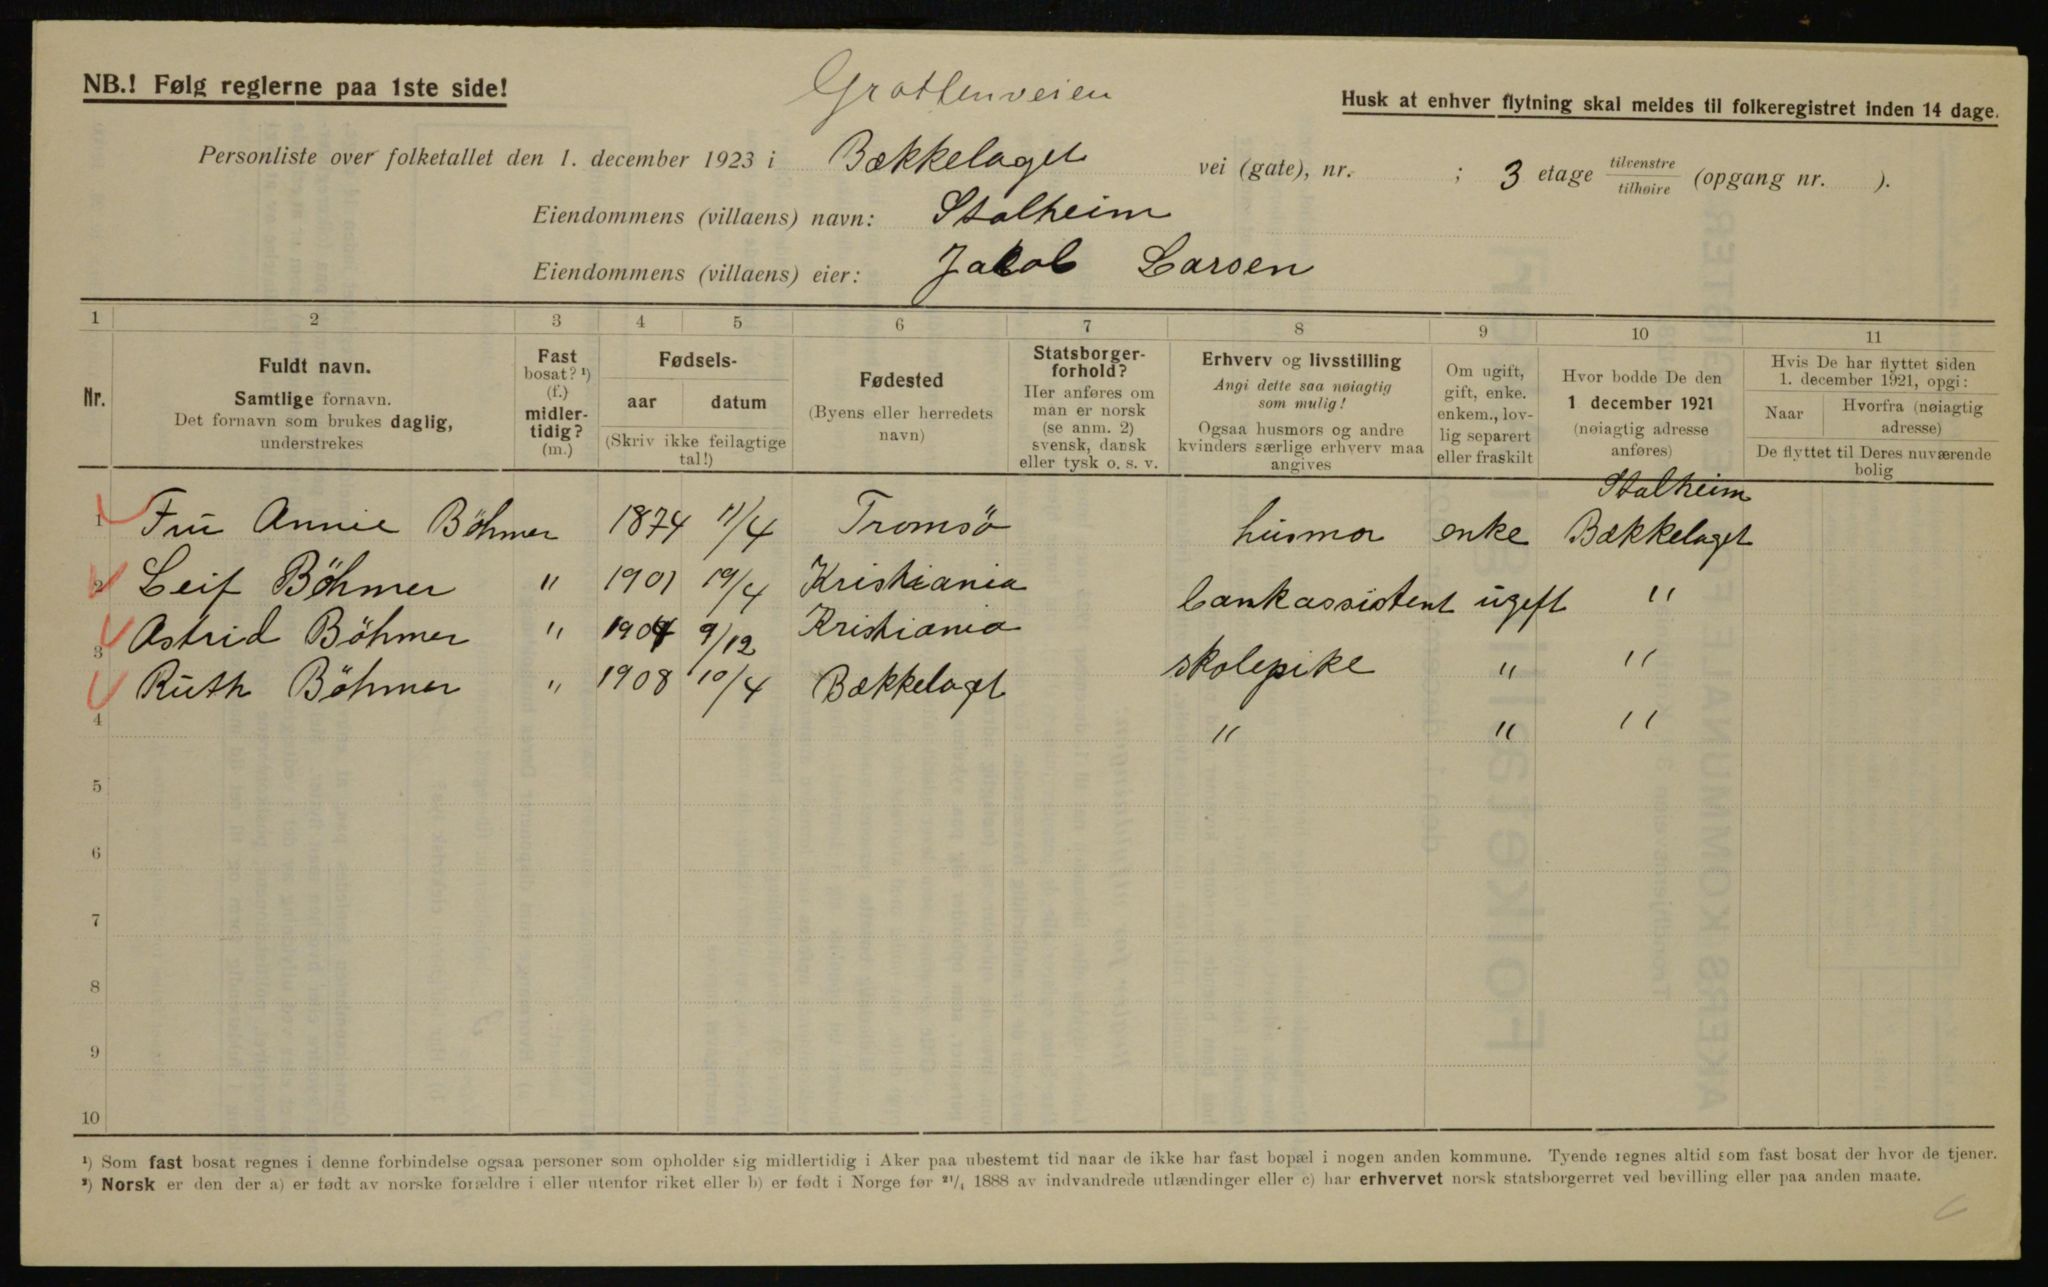 NB.! Følg reglerne paa 1ste side!
Grottenveien
Husk at enhver flytning skal meldes til folkeregistret inden 14 dage.
Personliste over folketallet den 1. december 1923 i Bækkelaget vei (gate), nr. ; 3 etage tilvenstre / tilhøire (opgang nr. ).
Eiendommens (villaens) navn: Stalheim
Eiendommens (villaens) eier: Jacob Larsen
1 2 3 4 5 6 7 8 9 10 11
Nr.
Fuldt navn.
Samtlige fornavn.
Det fornavn som brukes daglig,
understrekes
Fast
bosat? ¹)
(f.)
midler-
tidig?
(m.)
Fødsels-
aar datum
(Skriv ikke feilagtige
tal!)
Fødested
(Byens eller herredets
navn)
Statsborger-
forhold?
Her anføres om
man er norsk
(se anm. 2)
svensk, dansk
eller tysk o. s. v.
Erhverv og livsstilling
Angi dette saa nøiagtig
som mulig!
Ogsaa husmors og andre
kvinders særlige erhverv maa
angives
Om ugift,
gift, enke.
enkem., lov-
lig separert
eller fraskilt
Hvor bodde De den
1 december 1921
(nøiagtig adresse
anføres)
Hvis De har flyttet siden
1. december 1921, opgi:
Naar
Hvorfra (nøiagtig
adresse)
De flyttet til Deres nuværende
bolig
Stalheim
1 Fru Annie Böhmer 1874 11/4 Tromsö husmor enke Bækkelaget
2 Leif Böhmer " 1901 19/4 Kristiania bankassistent ugift "
3 Astrid Böhmer " 1904 9/12 Kristiania skolepike " "
4 Ruth Böhmer " 1908 10/4 Bækkelaget " " "
5
6
7
8
9
10
¹) Som fast bosat regnes i denne forbindelse ogsaa personer som opholder sig midlertidig i Aker paa ubestemt tid naar de ikke har fast bopæl i nogen anden kommune. Tyende regnes altid som fast bosat der hvor de tjener.
²) Norsk er den der a) er født av norske forældre i eller utenfor riket eller b) er født i Norge før ²¹/₄ 1888 av indvandrede utlændinger eller c) har erhvervet norsk statsborgerret ved bevilling eller paa anden maate.